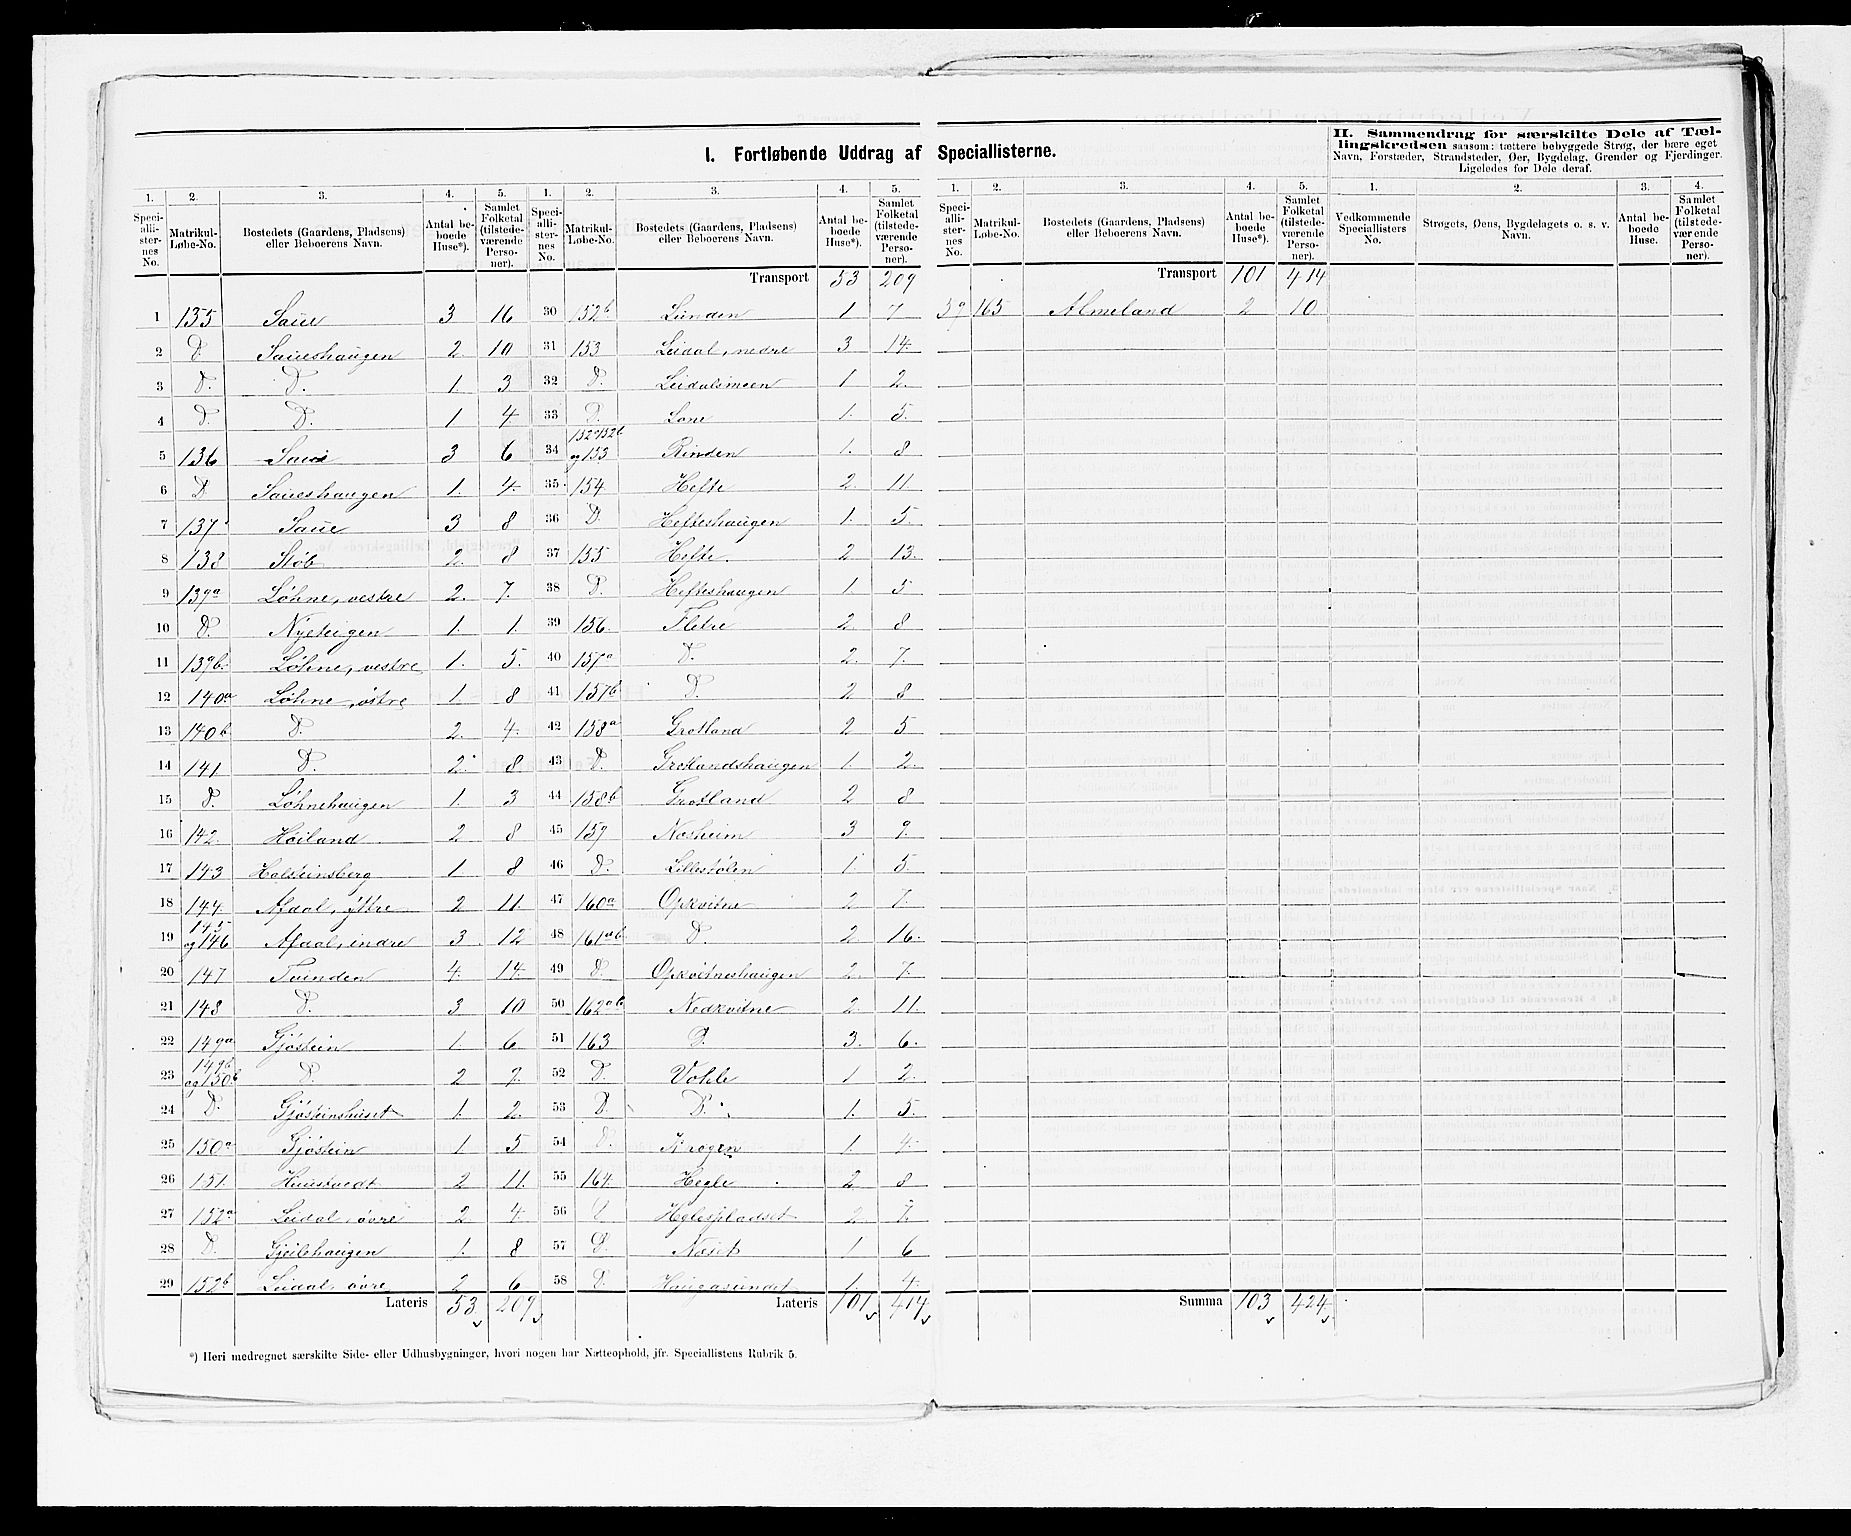 I. Fortløbende Uddrag af Speciallisterne.
II. Sammendrag for særskilte Dele af Tæl-
lingskredsen saasom: tættere bebyggede Strøg, der bære eget
Navn, Forstæder, Strandsteder, Øer, Bygdelag, Grender og Fjerdinger.
Ligeledes for Dele deraf.
1. 2. 3. 4. 5. 1. 2. 3. 4. 5. 1. 2. 3. 4. 5. 1. 2. 3. 4.
Speciallisternes No. Matrikul-Løbe-No. Bostedets (Gaardens, Pladsens) eller Beboerens Navn. Antal beboede Huse*). Samlet Folketal (tilstedeværende Personer).
Speciallisternes No. Matrikul-Løbe-No. Bostedets (Gaardens, Pladsens) eller Beboerens Navn. Antal beboede Huse*). Samlet Folketal (tilstedeværende Personer).
Speciallisternes No. Matrikul-Løbe-No. Bostedets (Gaardens, Pladsens) eller Beboerens Navn. Antal beboede Huse*). Samlet Folketal (tilstedeværende Personer).
Vedkommende Speciallisters No. Strøgets, Øens, Bygdelagets o. s. v. Navn. Antal beboede Huse. Samlet Folketal (tilstedeværende Personer).
1 135 Saue 3 16
2 D. Saueshaugen 2 10
3 D. D. 1. 3
4 D. D. 1 4
5 136 Saue 3 6
6 D. Saueshaugen 1. 4.
7 137 Saue 3 8
8 138 Støb 2. 8
9 139a Løhne, vestre 2. 7.
10 D. Nyeteigen 1. 1.
11 139b. Løhne, vestre 1. 5.
12 140a Løhne, østre 1 8
13 140b D. 2. 4.
14 141 D. 2. 8.
15 D. Løhnehaugen 1. 3
16 142. Høiland 2 8
17 143 Holsteinsberg 1. 8
18 144 Afdal, ytre 2 11.
19 145 og 146 Afdal, indre 3. 12
20 147 Tvinden 4. 14.
21 148 D. 3 10
22 149a Gjøstein 1. 6
23 149b og 150b D. 2
24 D. Gjøsteinshuset 1. 2.
25 150a Gjøstein 1 5
26 151. 2 11.
27 152a Leidal, øvre 2 4.
28 D. Gjeilehaugen 1. 8
29 152b Leidal, øvre 2 6
Lateris 53 209
Transport 53 209
30 152b Lunden 1 7
31 153 Leidal, nedre 3 14.
32 D. Leidalsmoen 1 2.
33 D. Lone 1. 5.
34 152a 152b og 153 Rinden 1. 8
35 154 Hefte 2. 11
36 D. Hefteshaugen 1. 5.
37 155 Hefte. 2 13.
38 D. Hefteshaugen 1 5
39 156. Fletre 2. 8
40 157a D. 2. 7.
41 157b D. 2 8
42 158a Grotland 2 5
43 D. Grotlandshaugen 1. 2.
44 158b Grotland 2 8
45 159 Nosheim 3 9.
46 D. Lillestølen 1. 5
47 160a Opkvitne 2 7.
48 161ab D. 2 16.
49 D. Opkvitneshaugen 2. 7.
50 162ab Nedkvitne 2. 11.
51 163 D. 3. 6.
52 D. Vokle 1 2.
53 D. D. 1. 5.
54 D. Krogen 1. 4.
55 164. Hegle 2 8
56 Heglespladset 2. 7.
57 D. Næset 1 6
58 D. Haugasundet 1. 4.
Lateris 101 414
Transport 101 414
59 165 Almeland 2 10
Summa 103 424
*) Heri medregnet særskilte Side- eller Udhusbygninger, hvori nogen har Natteophold, jfr. Speciallistens Rubrik 5.